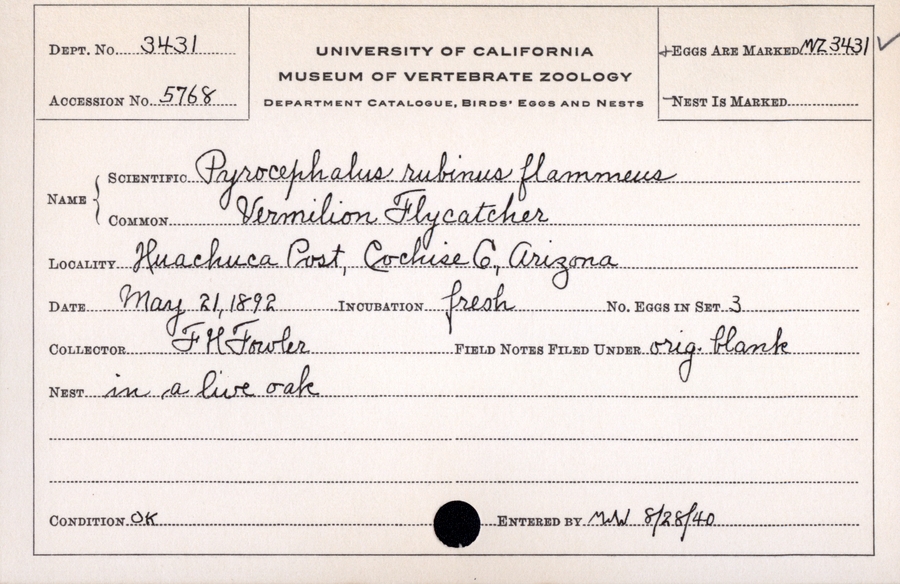 Dept. No. 3431
Accession No. 5768
UNIVERSITY OF CALIFORNIA
MUSEUM OF VERTEBRATE ZOOLOGY
Department Catalogue, Birds' Eggs and Nests
+Eggs Are Marked MZ3431 ✓
—Nest Is Marked
Name { Scientific Pyrocephalus rubinus flammeus
Common Vermilion Flycatcher
Locality Huachuca Post, Cochise Co, Arizona
Date May 21, 1892 Incubation fresh No. Eggs in Set 3
Collector F H Fowler Field Notes Filed Under orig. blank
Nest in a live oak
Condition OK Entered by 8/28/40